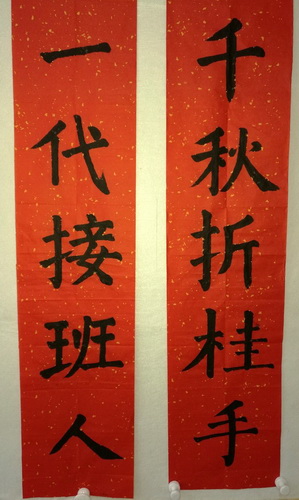 千秋折桂手
一代接班人